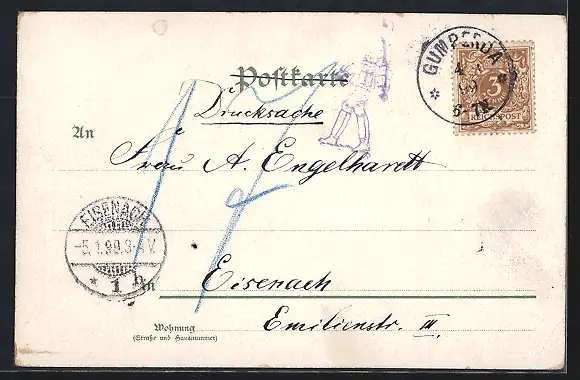 Postkarte
Drucksache
An
Frau A. Engelhardt
Eisenach
Emilienstr. III.
Wohnung
(Straße und Hausnummer)
in
GUMPERDA
3
REICHSPOST
EISENACH
-5.1.99.3-4V.
* 1 h